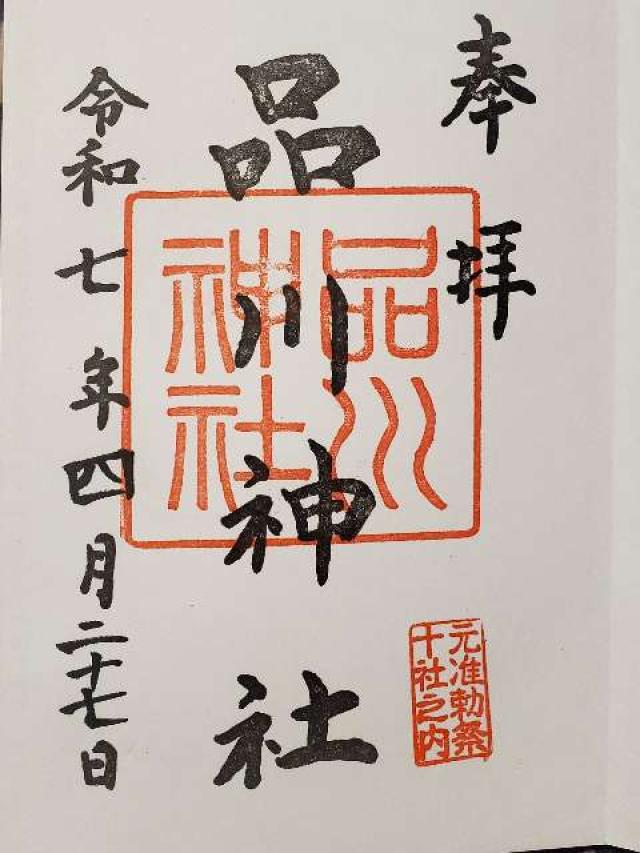 奉拝
品川神社
品川
神社
元准勅祭
十社之内
令和七年四月二十七日